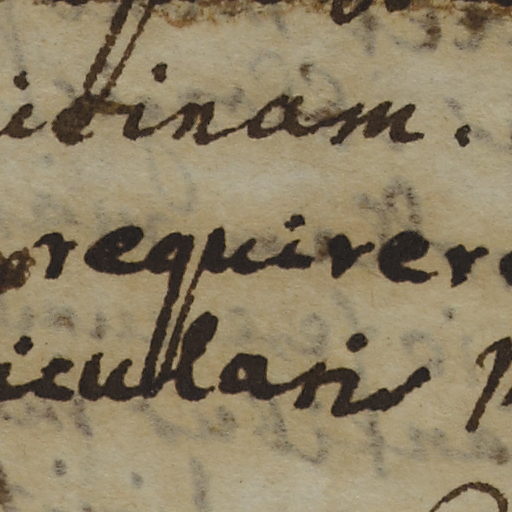 itinam.
requirere
icularis